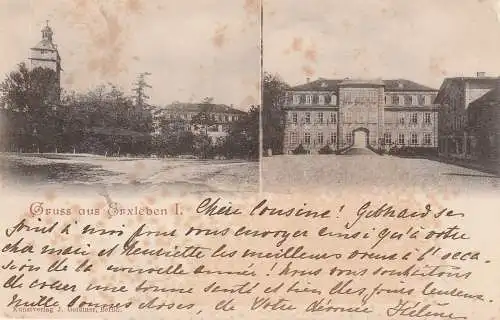 Gruss aus Erxleben I. Chère Cousine! Gebhard se
joint à moi pour vous envoyer ainsi qu'à votre
cha mari et Henriette les meilleurs vœux à l'occa
sion de la nouvelle année! Nous vous souhaitons
de cœur une bonne santé et bien des jours heureux.
Mille bonnes choses, de Votre dévouée Hélène
Kunstverlag J. Goldiner, Berlin.